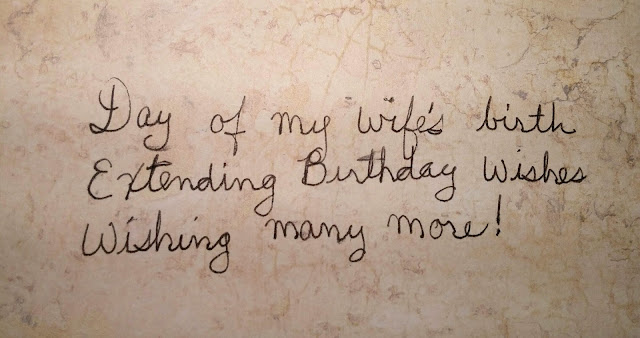 Day of my wife's birth
Extending Birthday Wishes
Wishing many more!